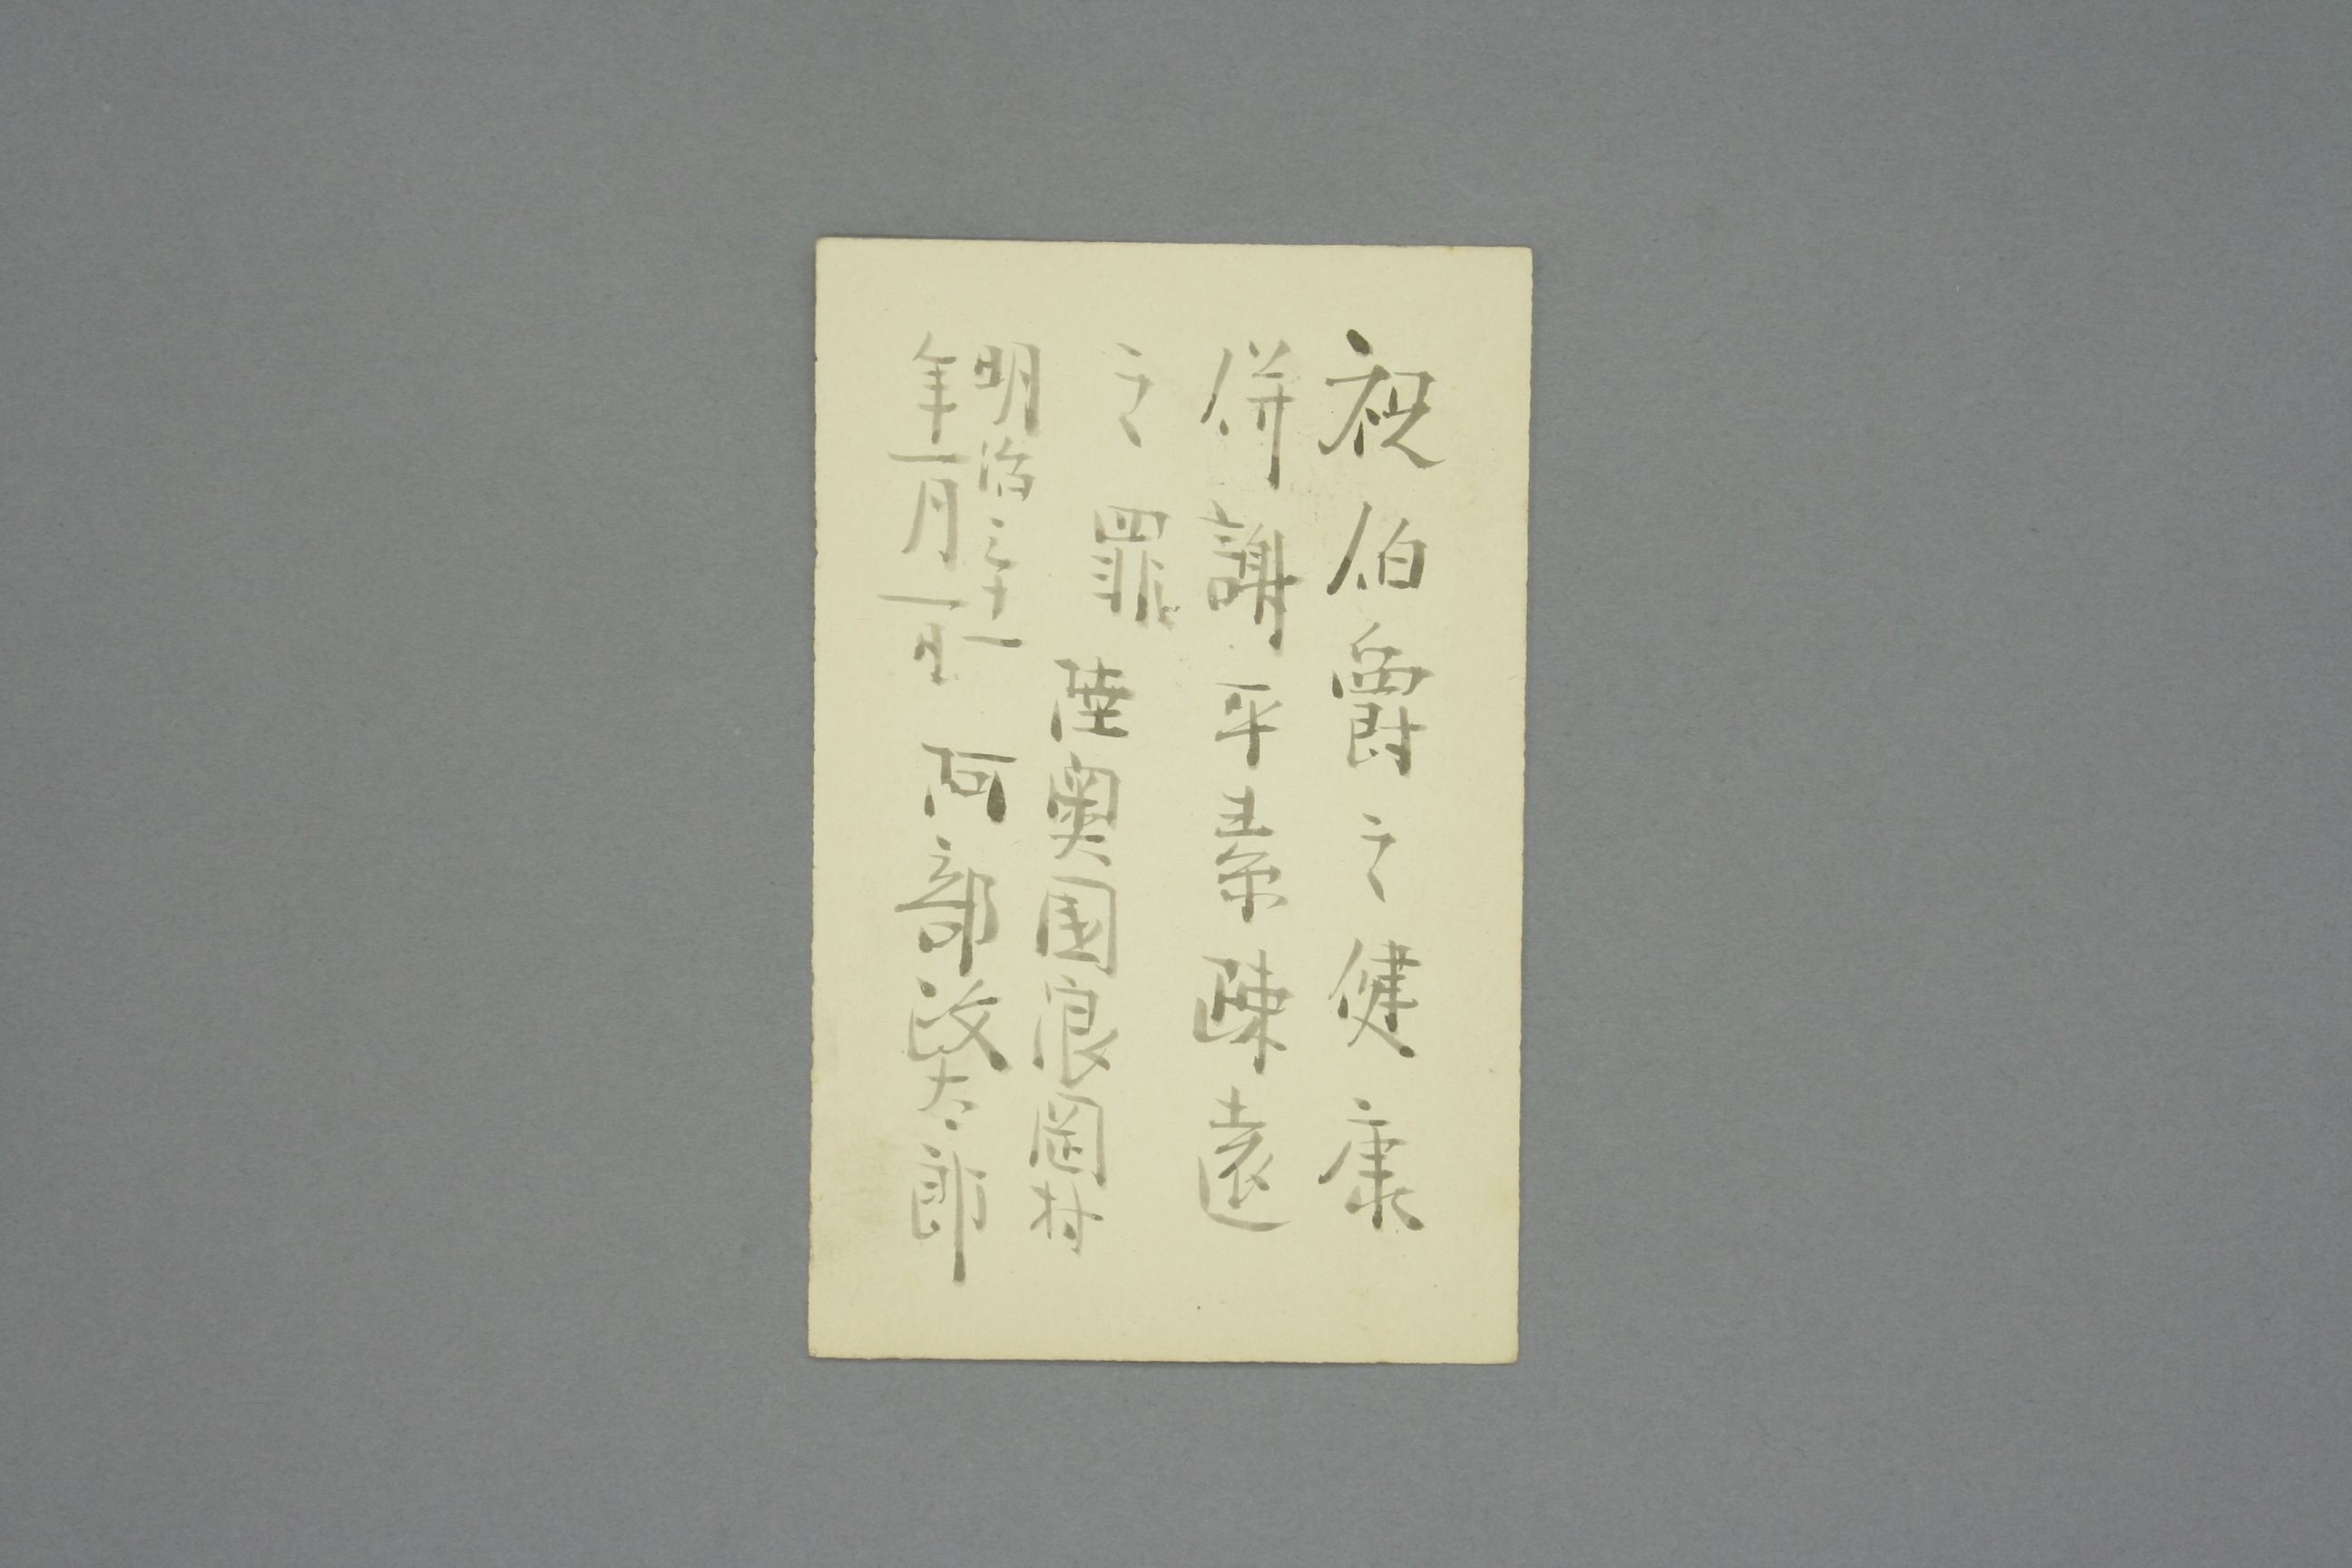 祝伯爵之健康
併謝平素疎遠
之罪
明治三十一
年一月一日
陸奥国浪岡村
阿部政太郎